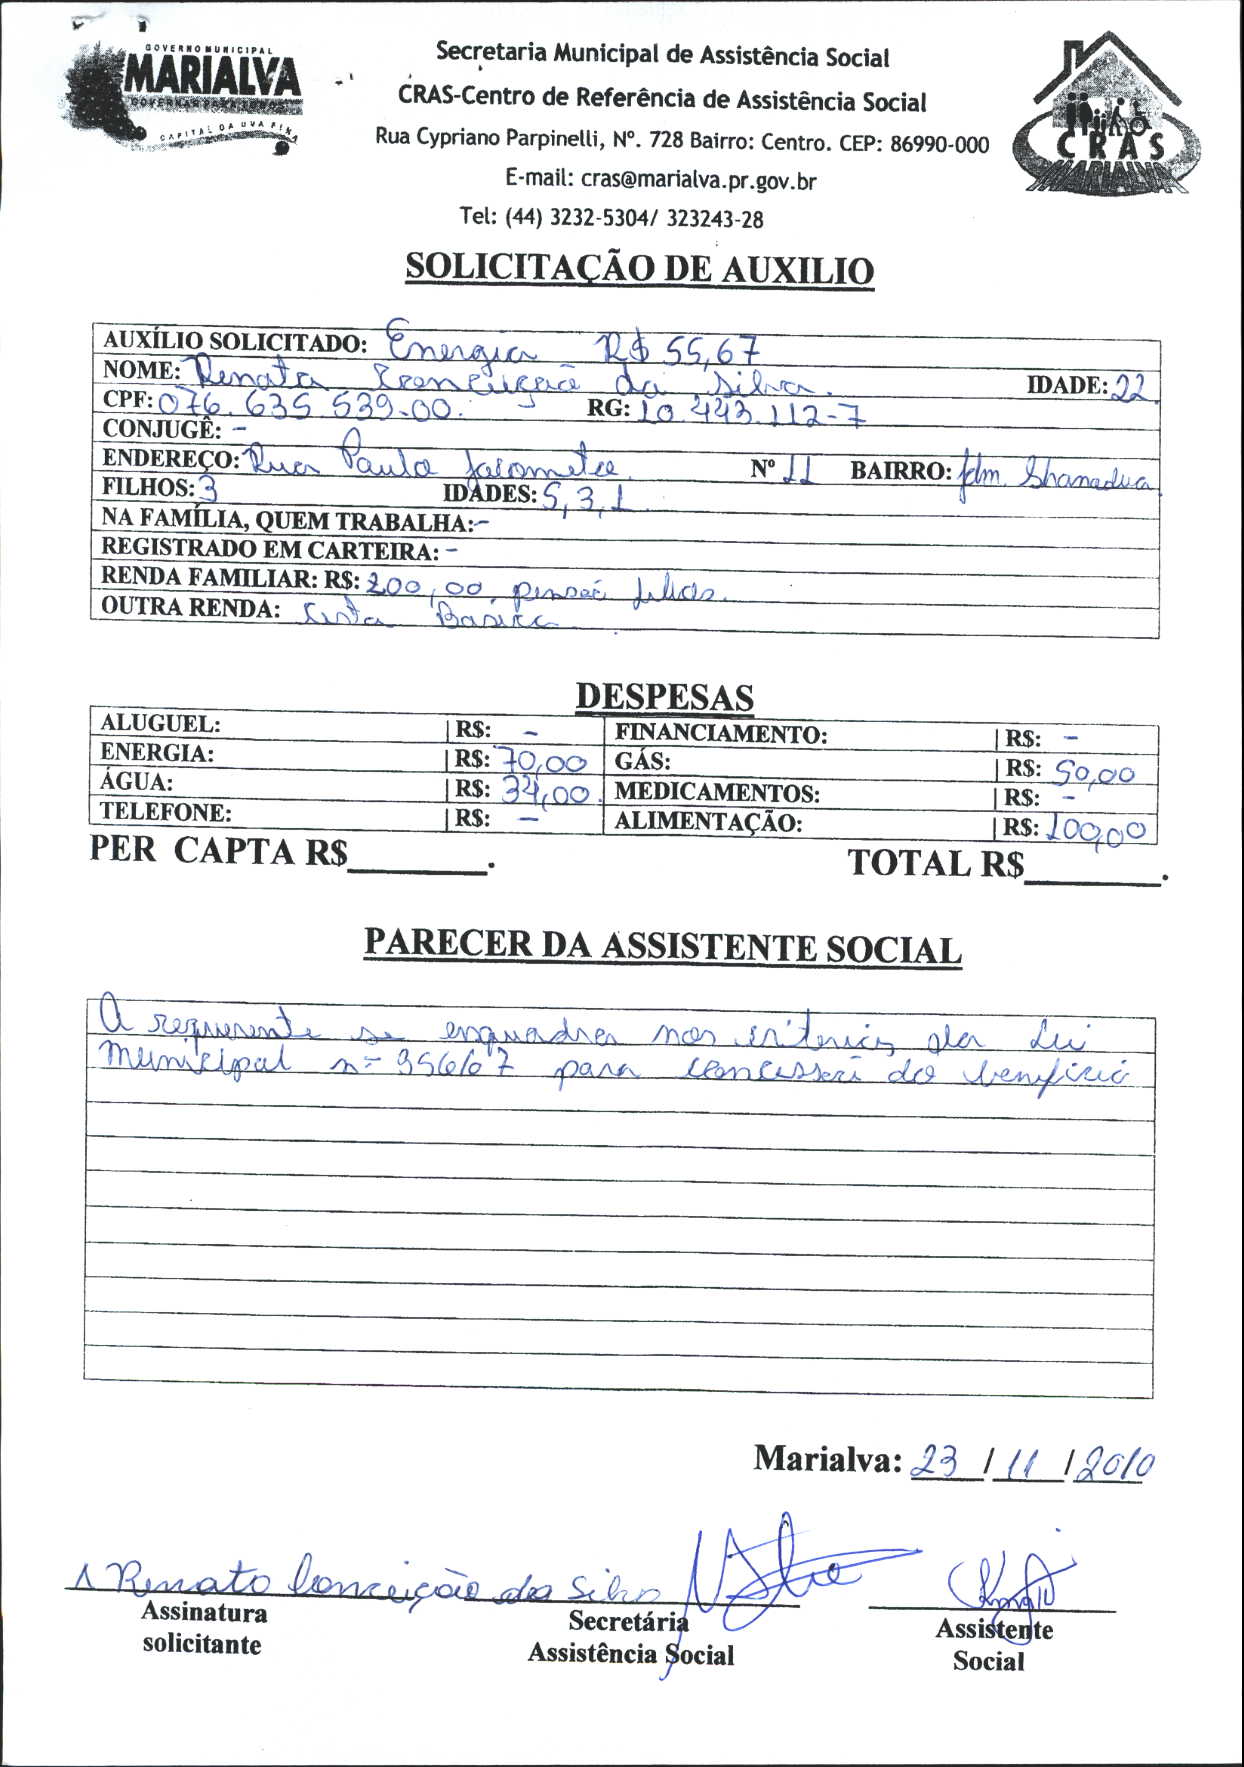 GOVERNO MUNICIPAL
MARIALVA
GOVERNAR PARA TODOS
CAPITAL DA UVA FINA
Secretaria Municipal de Assistência Social
CRAS-Centro de Referência de Assistência Social
Rua Cypriano Parpinelli, Nº. 728 Bairro: Centro. CEP: 86990-000
E-mail: cras@marialva.pr.gov.br
Tel: (44) 3232-5304/ 323243-28
CRAS
MARIALVA
SOLICITAÇÃO DE AUXILIO
AUXÍLIO SOLICITADO: Energia R$ 55,67
NOME: Renata Conceição da Silva. IDADE: 22
CPF: 076.635.539-00. RG: 10.443.112-7
CONJUGÊ: -
ENDEREÇO: Rua Paulo Nº 11 BAIRRO: Jdm.
FILHOS: 3 IDADES: 5, 3, 1
NA FAMÍLIA, QUEM TRABALHA: -
REGISTRADO EM CARTEIRA: -
RENDA FAMILIAR: R$: 200,00 pensão filhos.
OUTRA RENDA: Cesta Básica
DESPESAS
ALUGUEL: R$: - FINANCIAMENTO: R$: -
ENERGIA: R$: 70,00 GÁS: R$: 50,00
ÁGUA: R$: 34,00. MEDICAMENTOS: R$: -
TELEFONE: R$: - ALIMENTAÇÃO: R$: 100,00
PER CAPTA R$________. TOTAL R$________.
PARECER DA ASSISTENTE SOCIAL
A requerente se enquadra nos critérios da Lei
Municipal nº 956/07 para concessão do benefício
Marialva: 23 / 11 / 2010
Renato Conceição da Silva
Assinatura solicitante
Secretária Assistência Social
Assistente Social